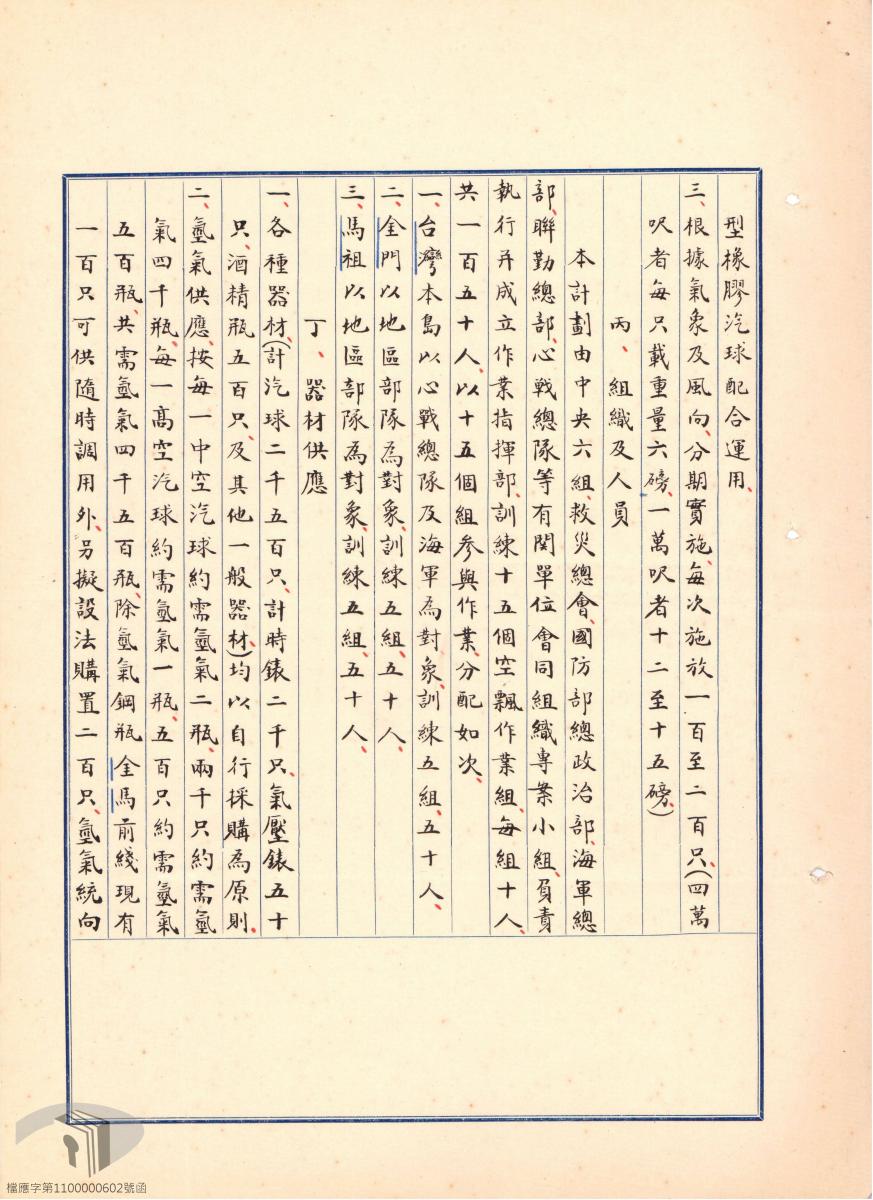 型橡膠汽球配合運用、
三、根據氣象及風向、分期實施、每次施放一百至二百只、(四萬
呎者每只載重量六磅、一萬呎者十二至十五磅、)
丙、組織及人員
本計劃由中央六組、救災總會、國防部總政治部、海軍總
部、聯勤總部、心戰總隊等有関單位會同組織專案小組、負責
執行并成立作業指揮部、訓練十五個空飄作業組、每組十人、
共一百五十人、以十五個組參與作業、分配如次、
一、台灣本島以心戰總隊及海軍為對象、訓練五組、五十人、
二、金門以地區部隊為對象、訓練五組、五十人、
三、馬祖以地區部隊為對象、訓練五組、五十人、
丁、器材供應
一、各種器材、(計汽球二千五百只、計時錶二千只、氣壓錶五十
只、酒精瓶五百只、及其他一般器材、)均以自行採購為原則、
二、氫氣供應、按每一中空汽球約需氫氣二瓶、兩千只約需氫
氣四千瓶、每一高空汽球約需氫氣一瓶、五百只約需氫氣
五百瓶、共需氫氣四千五百瓶、除氫氣鋼瓶金馬前綫現有
一百只可供隨時調用外、另擬設法購置二百只、氫氣統向
檔應字第1100000602號函